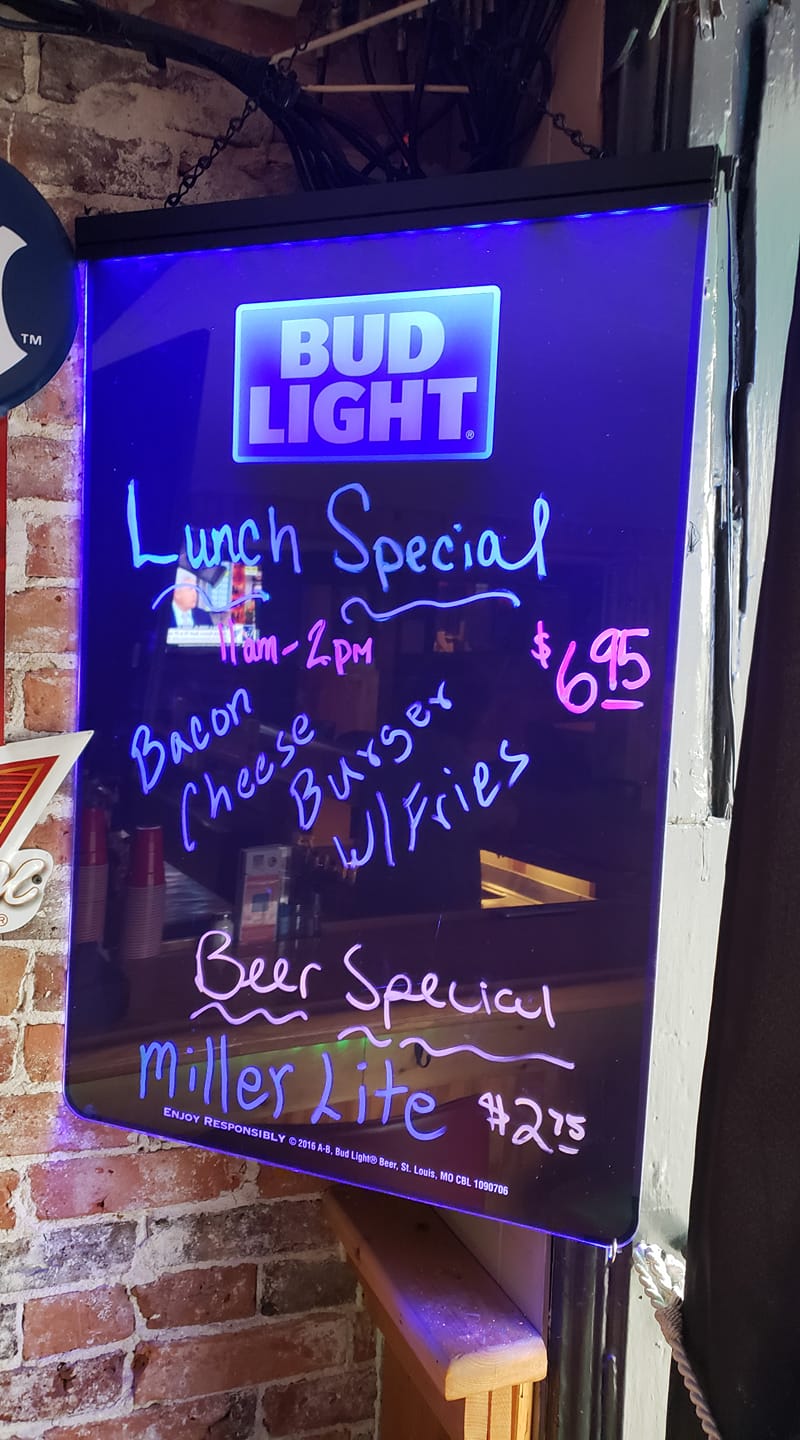 TM
BUD
LIGHT®
Lunch Special
11am-2pm
$6.95
Bacon
Cheese
Burger
w/Fries
Beer Special
Miller Lite $2.75
ENJOY RESPONSIBLY © 2016 A-B, Bud Light® Beer, St. Louis, MO CBL 1090706